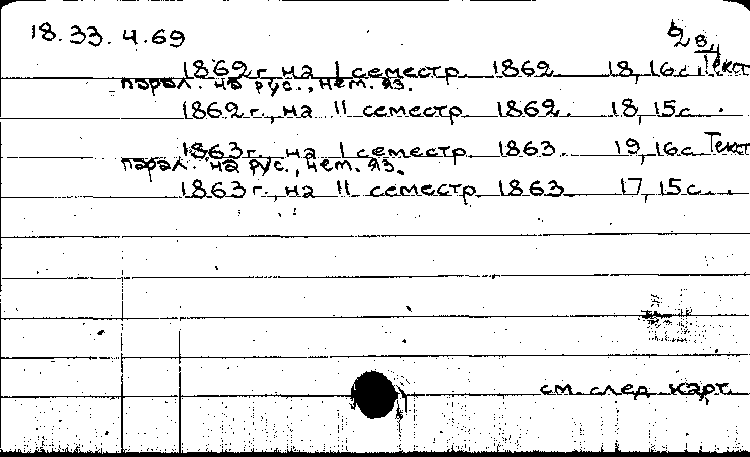 18.33.4.69
1862 г., на I семестр. 1862. 18, 16 с. Текст
парал. на рус., нем. яз.
1862 г., на II семестр. 1862. 18, 15 с.
1863 г., на I семестр. 1863. 19, 16 с. Текст
парал. на рус., нем. яз.
1863 г., на II семестр. 1863. 17, 15 с.
см. след. карт.